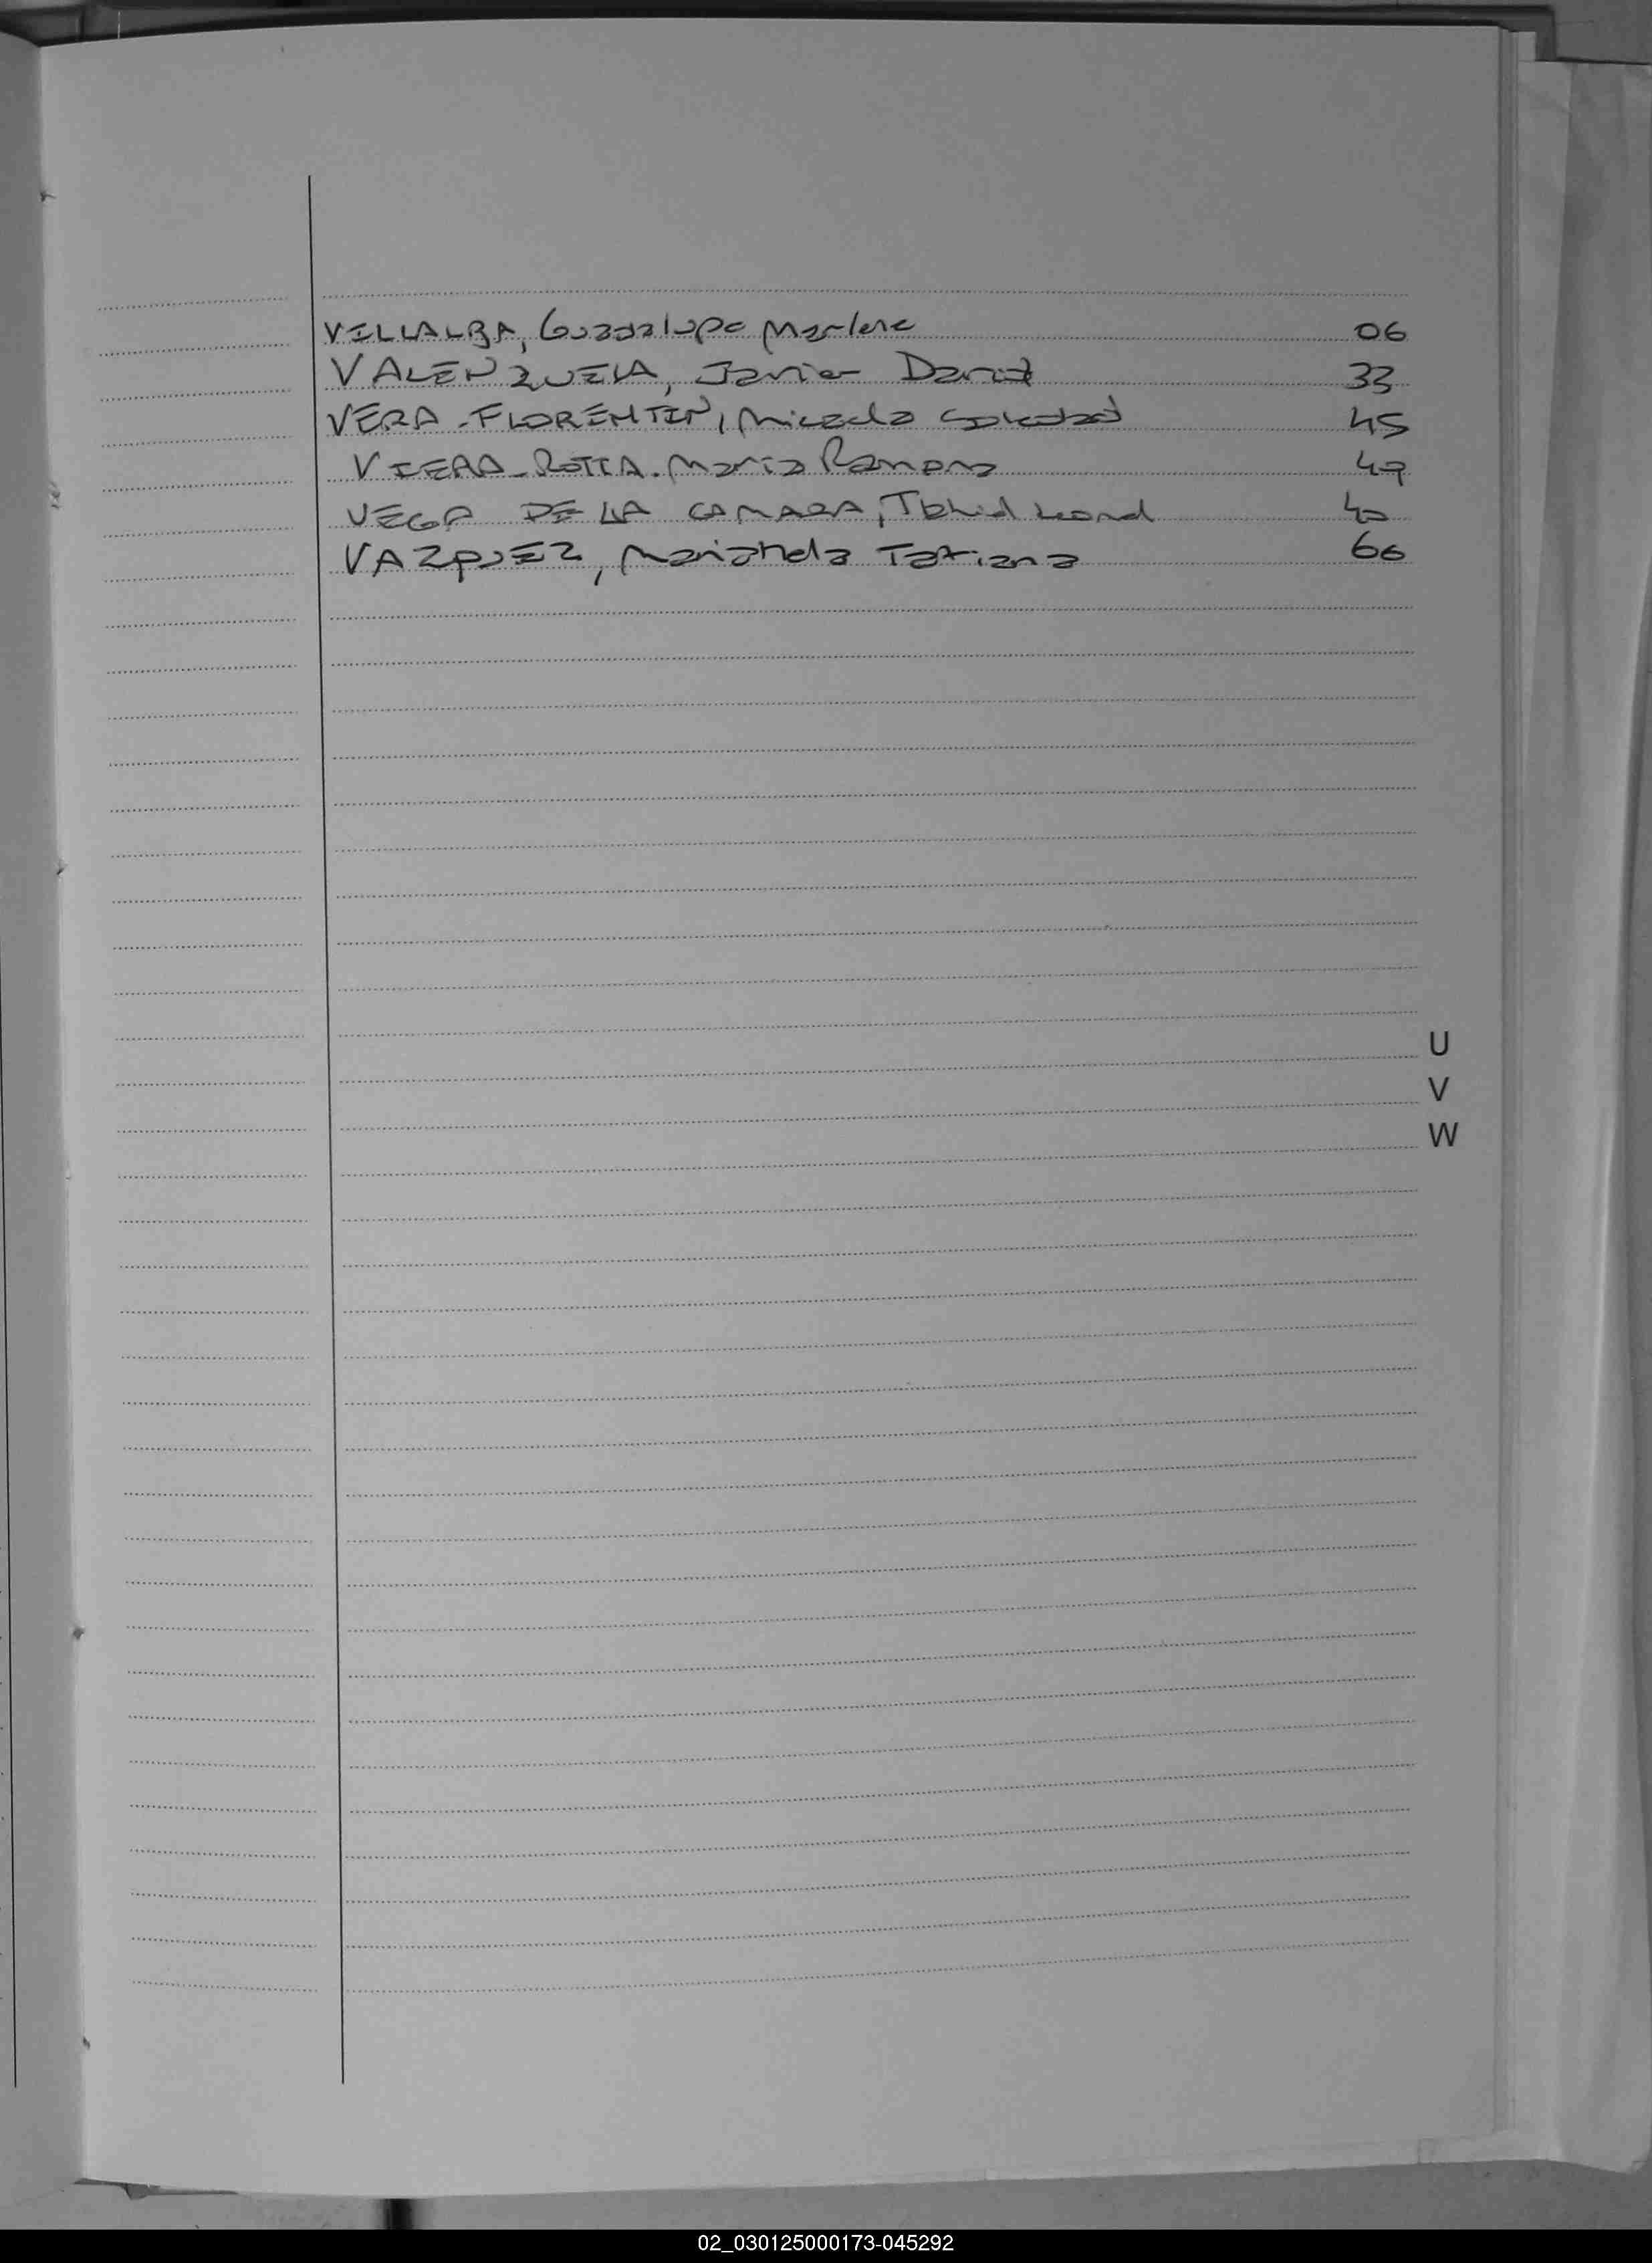 VILLALBA, Guadalupe Marlene 06
VALENZUELA, Javier David 33
VERA-FLORENTIN, Micaela Soledad 45
VIERA-ROTTA. Maria Ramona 49
VEGA DE LA CAMARA, 40
VAZQUEZ, Marianela Tatiana 66
U
V
W
02_030125000173-045292